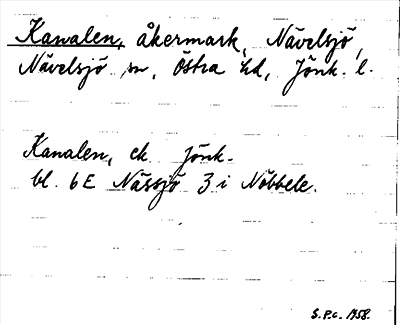 Kanalen, åkermark, Nävelsjö,
Nävelsjö sn, Östra hd, Jönk. l.
Kanalen, ek Jönk-
bl. 6E Nässjö 3 i Nöbbele.
S.P.C. 1958.